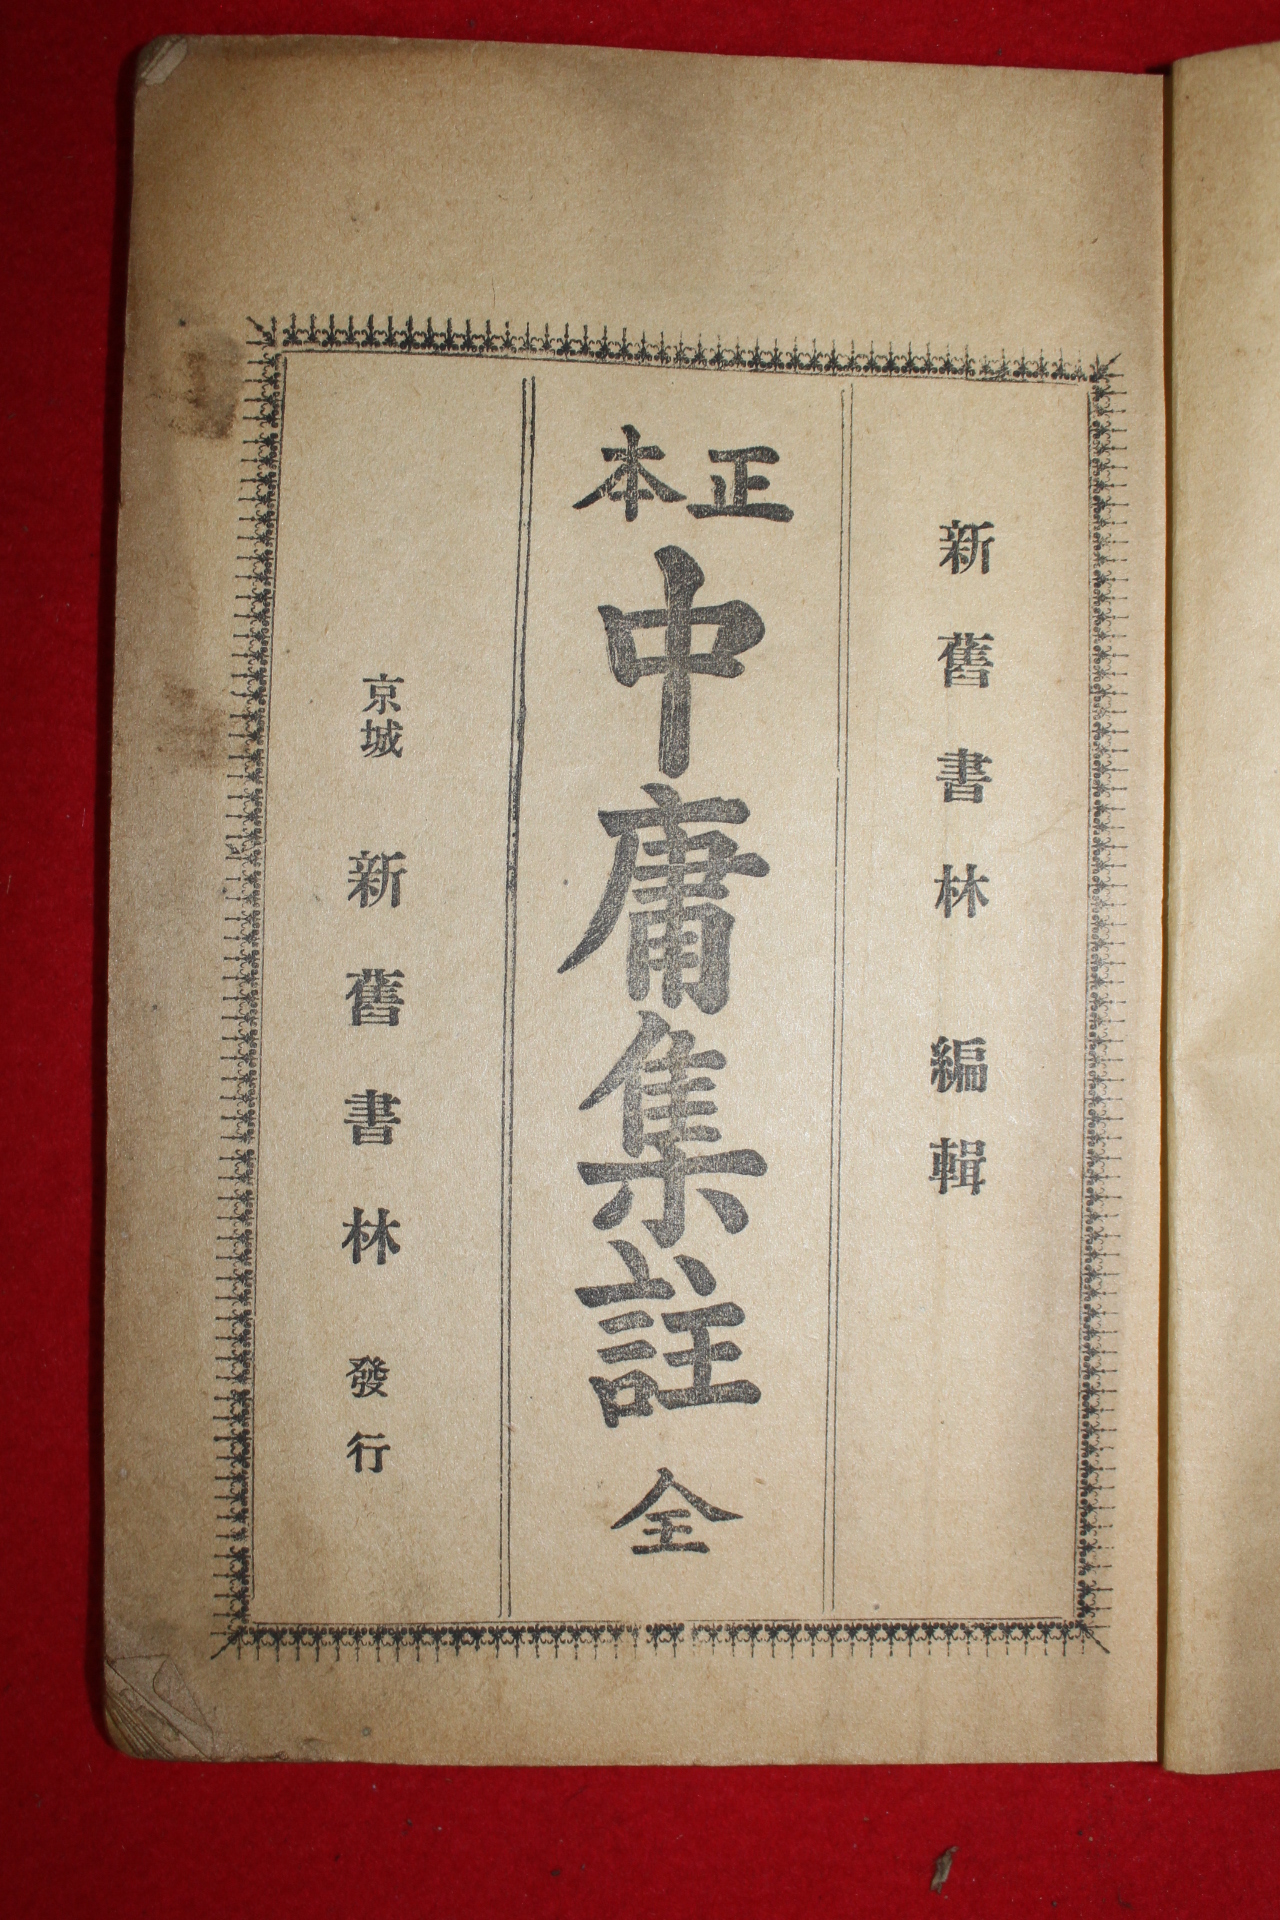 新舊書林 編輯
正本
中庸集註 全
京城 新舊書林 發行